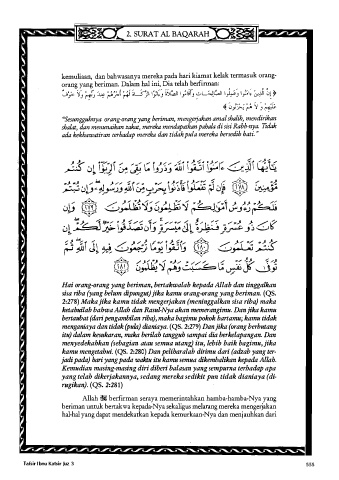 2. SURAT AL BAQARAH
kemuliaan, dan bahwasanya mereka pada hari kiamat kelak termasuk orang-
orang yang beriman. Dalam hal ini, Dia telah berfirman:
﴿ إِنَّ الَّذِينَ ءَامَنُوا وَعَمِلُوا الصَّالِحَاتِ وَأَقَامُوا الصَّلَاةَ وَءَاتَوُا الزَّكَاةَ لَهُمْ أَجْرُهُمْ عِندَ رَبِّهِمْ وَلَا خَوْفٌ
عَلَيْهِمْ وَلَا هُمْ يَحْزَنُونَ ﴾
"Sesungguhnya orang-orang yang beriman, mengerjakan amal shalih, mendirikan
shalat, dan menunaikan zakat, mereka mendapatkan pahala di sisi Rabb-nya. Tidak
ada kekhawatiran terhadap mereka dan tidak pula mereka bersedih hati."
يَٰٓأَيُّهَا ٱلَّذِينَ ءَامَنُوا۟ ٱتَّقُوا۟ ٱللَّهَ وَذَرُوا۟ مَا بَقِىَ مِنَ ٱلرِّبَوٰٓا۟ إِن كُنتُم
مُّؤْمِنِينَ ﴿٢٧٨﴾ فَإِن لَّمْ تَفْعَلُوا۟ فَأْذَنُوا۟ بِحَرْبٍ مِّنَ ٱللَّهِ وَرَسُولِهِۦ وَإِن تُبْتُمْ
فَلَكُمْ رُءُوسُ أَمْوَٰلِكُمْ لَا تَظْلِمُونَ وَلَا تُظْلَمُونَ ﴿٢٧٩﴾ وَإِن
كَانَ ذُو عُسْرَةٍ فَنَظِرَةٌ إِلَىٰ مَيْسَرَةٍ وَأَن تَصَدَّقُوا۟ خَيْرٌ لَّكُمْ إِن
كُنتُمْ تَعْلَمُونَ ﴿٢٨٠﴾ وَٱتَّقُوا۟ يَوْمًا تُرْجَعُونَ فِيهِ إِلَى ٱللَّهِ ثُمَّ
تُوَفَّىٰ كُلُّ نَفْسٍ مَّا كَسَبَتْ وَهُمْ لَا يُظْلَمُونَ ﴿٢٨١﴾
Hai orang-orang yang beriman, bertakwalah kepada Allah dan tinggalkan
sisa riba (yang belum dipungut) jika kamu orang-orang yang beriman. (QS.
2:278) Maka jika kamu tidak mengerjakan (meninggalkan sisa riba) maka
ketahuilah bahwa Allah dan Rasul-Nya akan memerangimu. Dan jika kamu
bertaubat (dari pengambilan riba), maka bagimu pokok hartamu; kamu tidak
menganiaya dan tidak (pula) dianiaya. (QS. 2:279) Dan jika (orang berhutang
itu) dalam kesukaran, maka berilah tangguh sampai dia berkelapangan. Dan
menyedekahkan (sebagian atau semua utang) itu, lebih baik bagimu, jika
kamu mengetahui. (QS. 2:280) Dan peliharalah dirimu dari (adzab yang ter-
jadi pada) hari yang pada waktu itu kamu semua dikembalikan kepada Allah.
Kemudian masing-masing diri diberi balasan yang sempurna terhadap apa
yang telah dikerjakannya, sedang mereka sedikit pun tidak dianiaya (di-
rugikan). (QS. 2:281)
Allah ﷻ berfirman seraya memerintahkan hamba-hamba-Nya yang
beriman untuk bertakwa kepada-Nya sekaligus melarang mereka mengerjakan
hal-hal yang dapat mendekatkan kepada kemurkaan-Nya dan menjauhkan dari
Tafsir Ibnu Katsir Juz 3
555